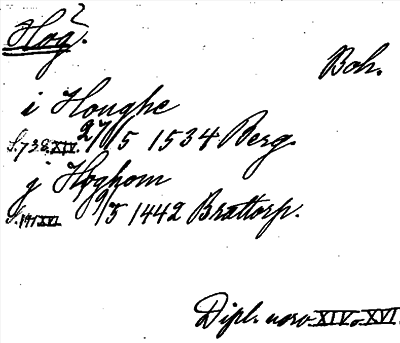 Hog?
Boh.
i Houghe
S. 738 XIV. 27/5 1534 Berg.
j Høghom
S. 191 XVI 9/3 1442 Brattorp.
Dipl. norv. XIV o. XVI.